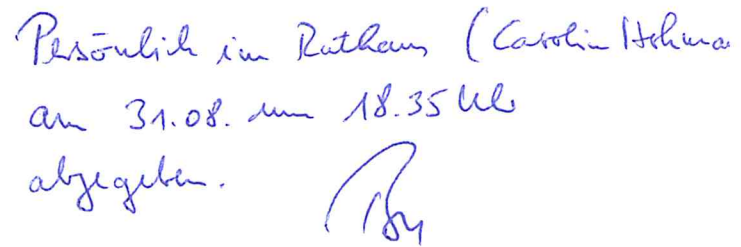 Persönlich im Rathaus (Carolin
am 31.08. um 18.35 Uhr
abgegeben.